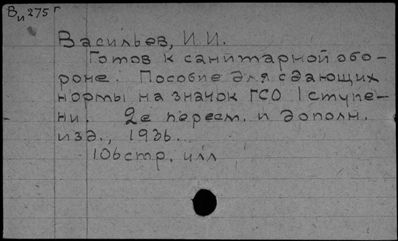 Ви 275 г
Васильев, И. И.
Готов к санитарной обо-
роне. Пособие для сдающих
нормы на значок ГСО I ступе-
ни. 2е пересм. и дополн.
изд., 1936.
106 стр. илл